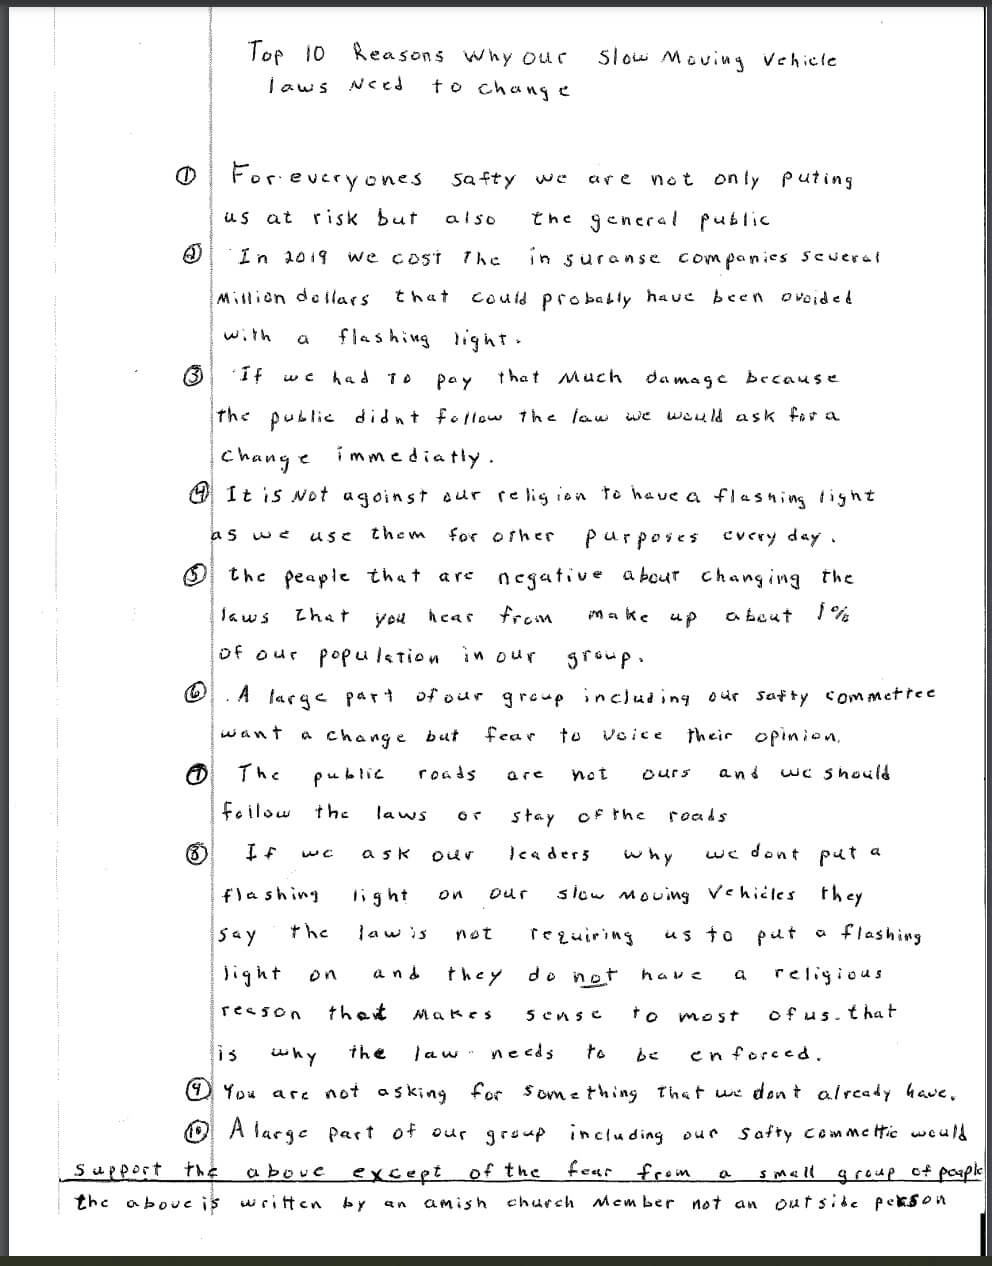 Top 10 Reasons Why our Slow Moving Vehicle
laws Need to change
① For everyones safty we are not only puting
us at risk but also the general public
② In 2019 we cost The insuranse companies several
Million dollars that could probably have been avoided
with a flashing light.
③ If we had To pay that Much damage because
the public didnt follow The law we would ask for a
change immediatly.
④ It is Not against our religion to have a flashing light
as we use them for other purposes every day.
⑤ the peaple that are negative about changing the
laws that you hear from make up about 1%
of our population in our group.
⑥ A large part of our group including our safty commettee
want a change but fear to voice their opinion.
⑦ The public roads are not ours and we should
follow the laws or stay of the roads
⑧ If we ask our leaders why we dont put a
flashing light on our slow Moving Vehicles they
say the law is not requiring us to put a flashing
light on and they do not have a religious
reason that Makes sense to most of us. that
is why the law needs to be enforced.
⑨ You are not asking for something That we dont already have.
⑩ A large part of our group including our safty commettie would
support the above except of the fear from a small group of people
the above is written by an amish church Member not an outside person